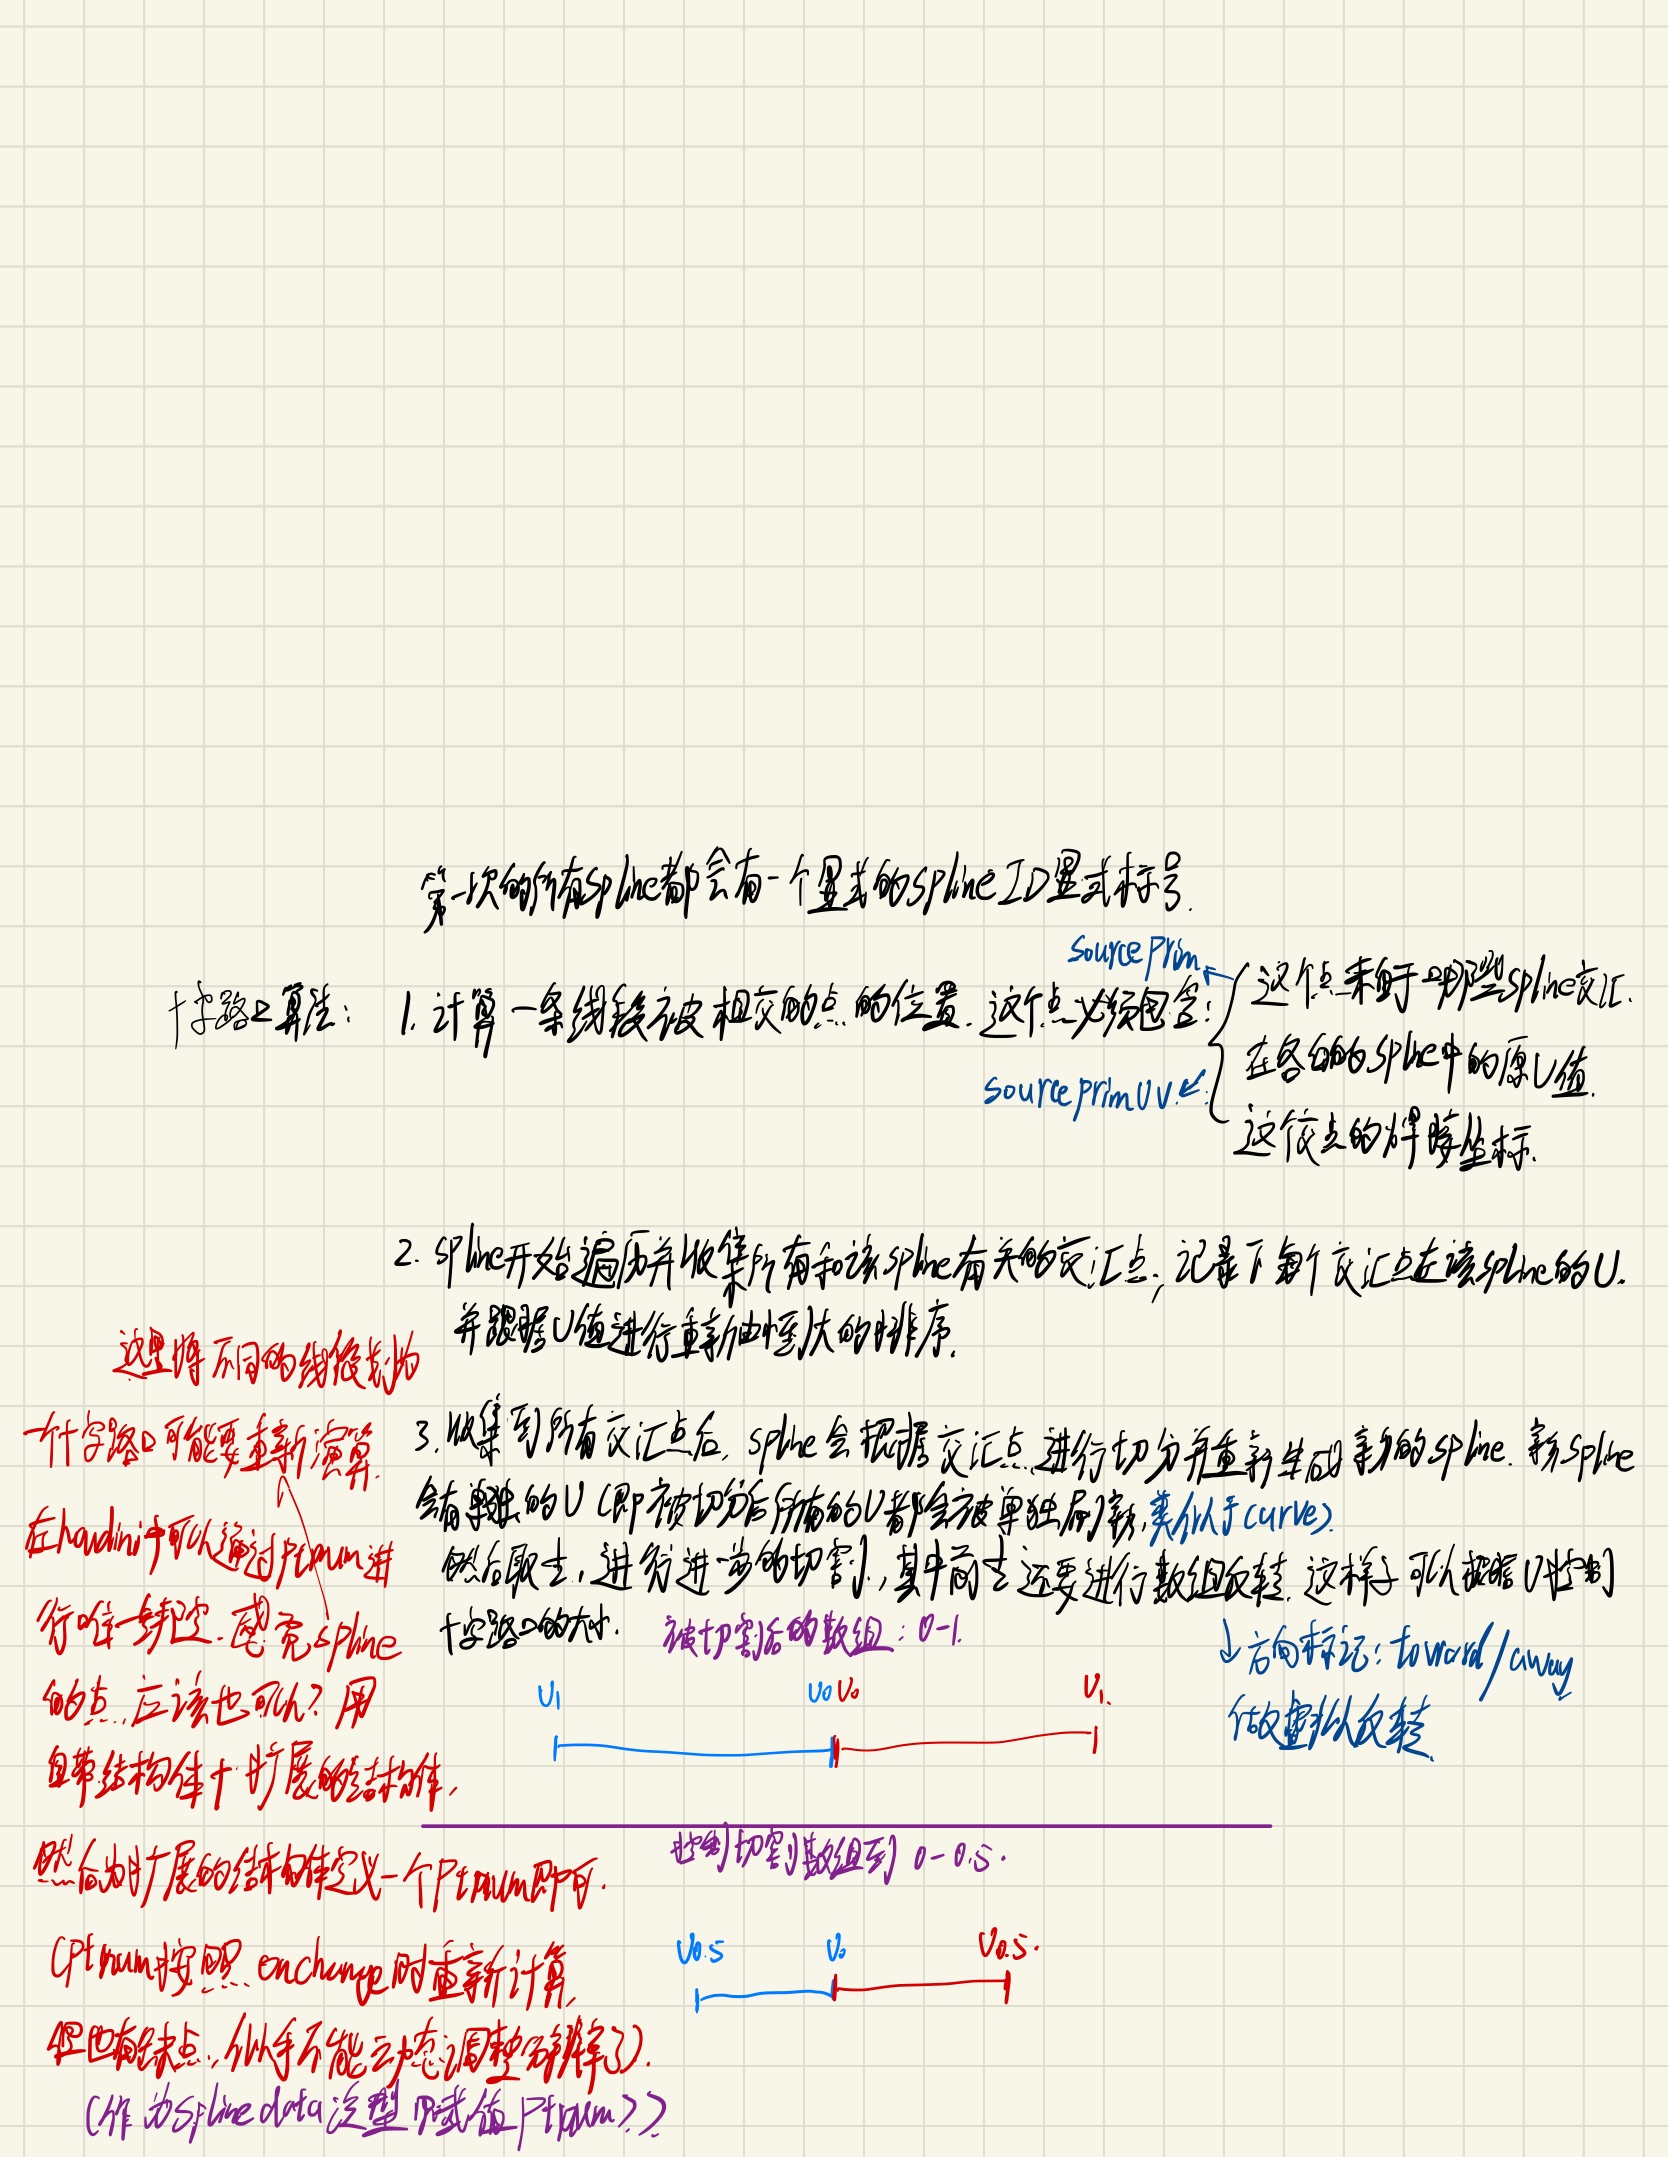 第一次的所有spline都会有一个显式的spline ID显式标号.
十字路口算法: 1. 计算一条线段被相交的点的位置. 这个点必须包含:
source prim
这个点来自于哪些spline交汇.
在各自的spline中的原U值.
source prim UV.
这个交点的焊接坐标.
2. spline开始遍历并收集所有和该spline有关的交汇点, 记录下每个交汇点在该spline的U.
并跟据U值进行重新由小到大的排序.
3. 收集到所有交汇点后, spline会根据交汇点进行切分并重新生成新的spline. 新spline
会有单独的U (即被切分后所有的U都会被单独刷新, 类似于curve).
然后取士, 进行进一步的切割, 其中前士还要进行数组反转. 这样子可以根据U控制
十字路口的大小.
↓方向标记: toward/away
做虚拟反转.
被切割后的数组: 0-1.
U1 U0 U0 U1.
控制切割数组到 0-0.5.
U0.5 U0 U0.5.
这里将不同的线段划为
一个十字路口可能要重新演算.
在houdini中可以通过Ptnum进
行唯一绑定. 感觉spline
的点应该也可以? 用
自带结构体+扩展的结构体,
然后为扩展的结构体定义一个Ptnum即可.
(Ptnum按照 onchange时重新计算,
但也有缺点, 似乎不能动态调整分辨率了).
(作为Spline data泛型赋值Ptnum?)